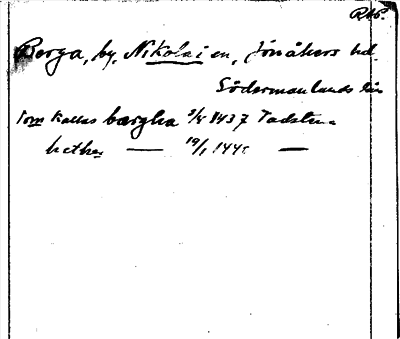 RAp.
Berga, by, Nikolai en, Jönåkers hd.
Södermanlands län
som kallas bærgha 5/5 1437 Tadstena
hethe — 19/1 144